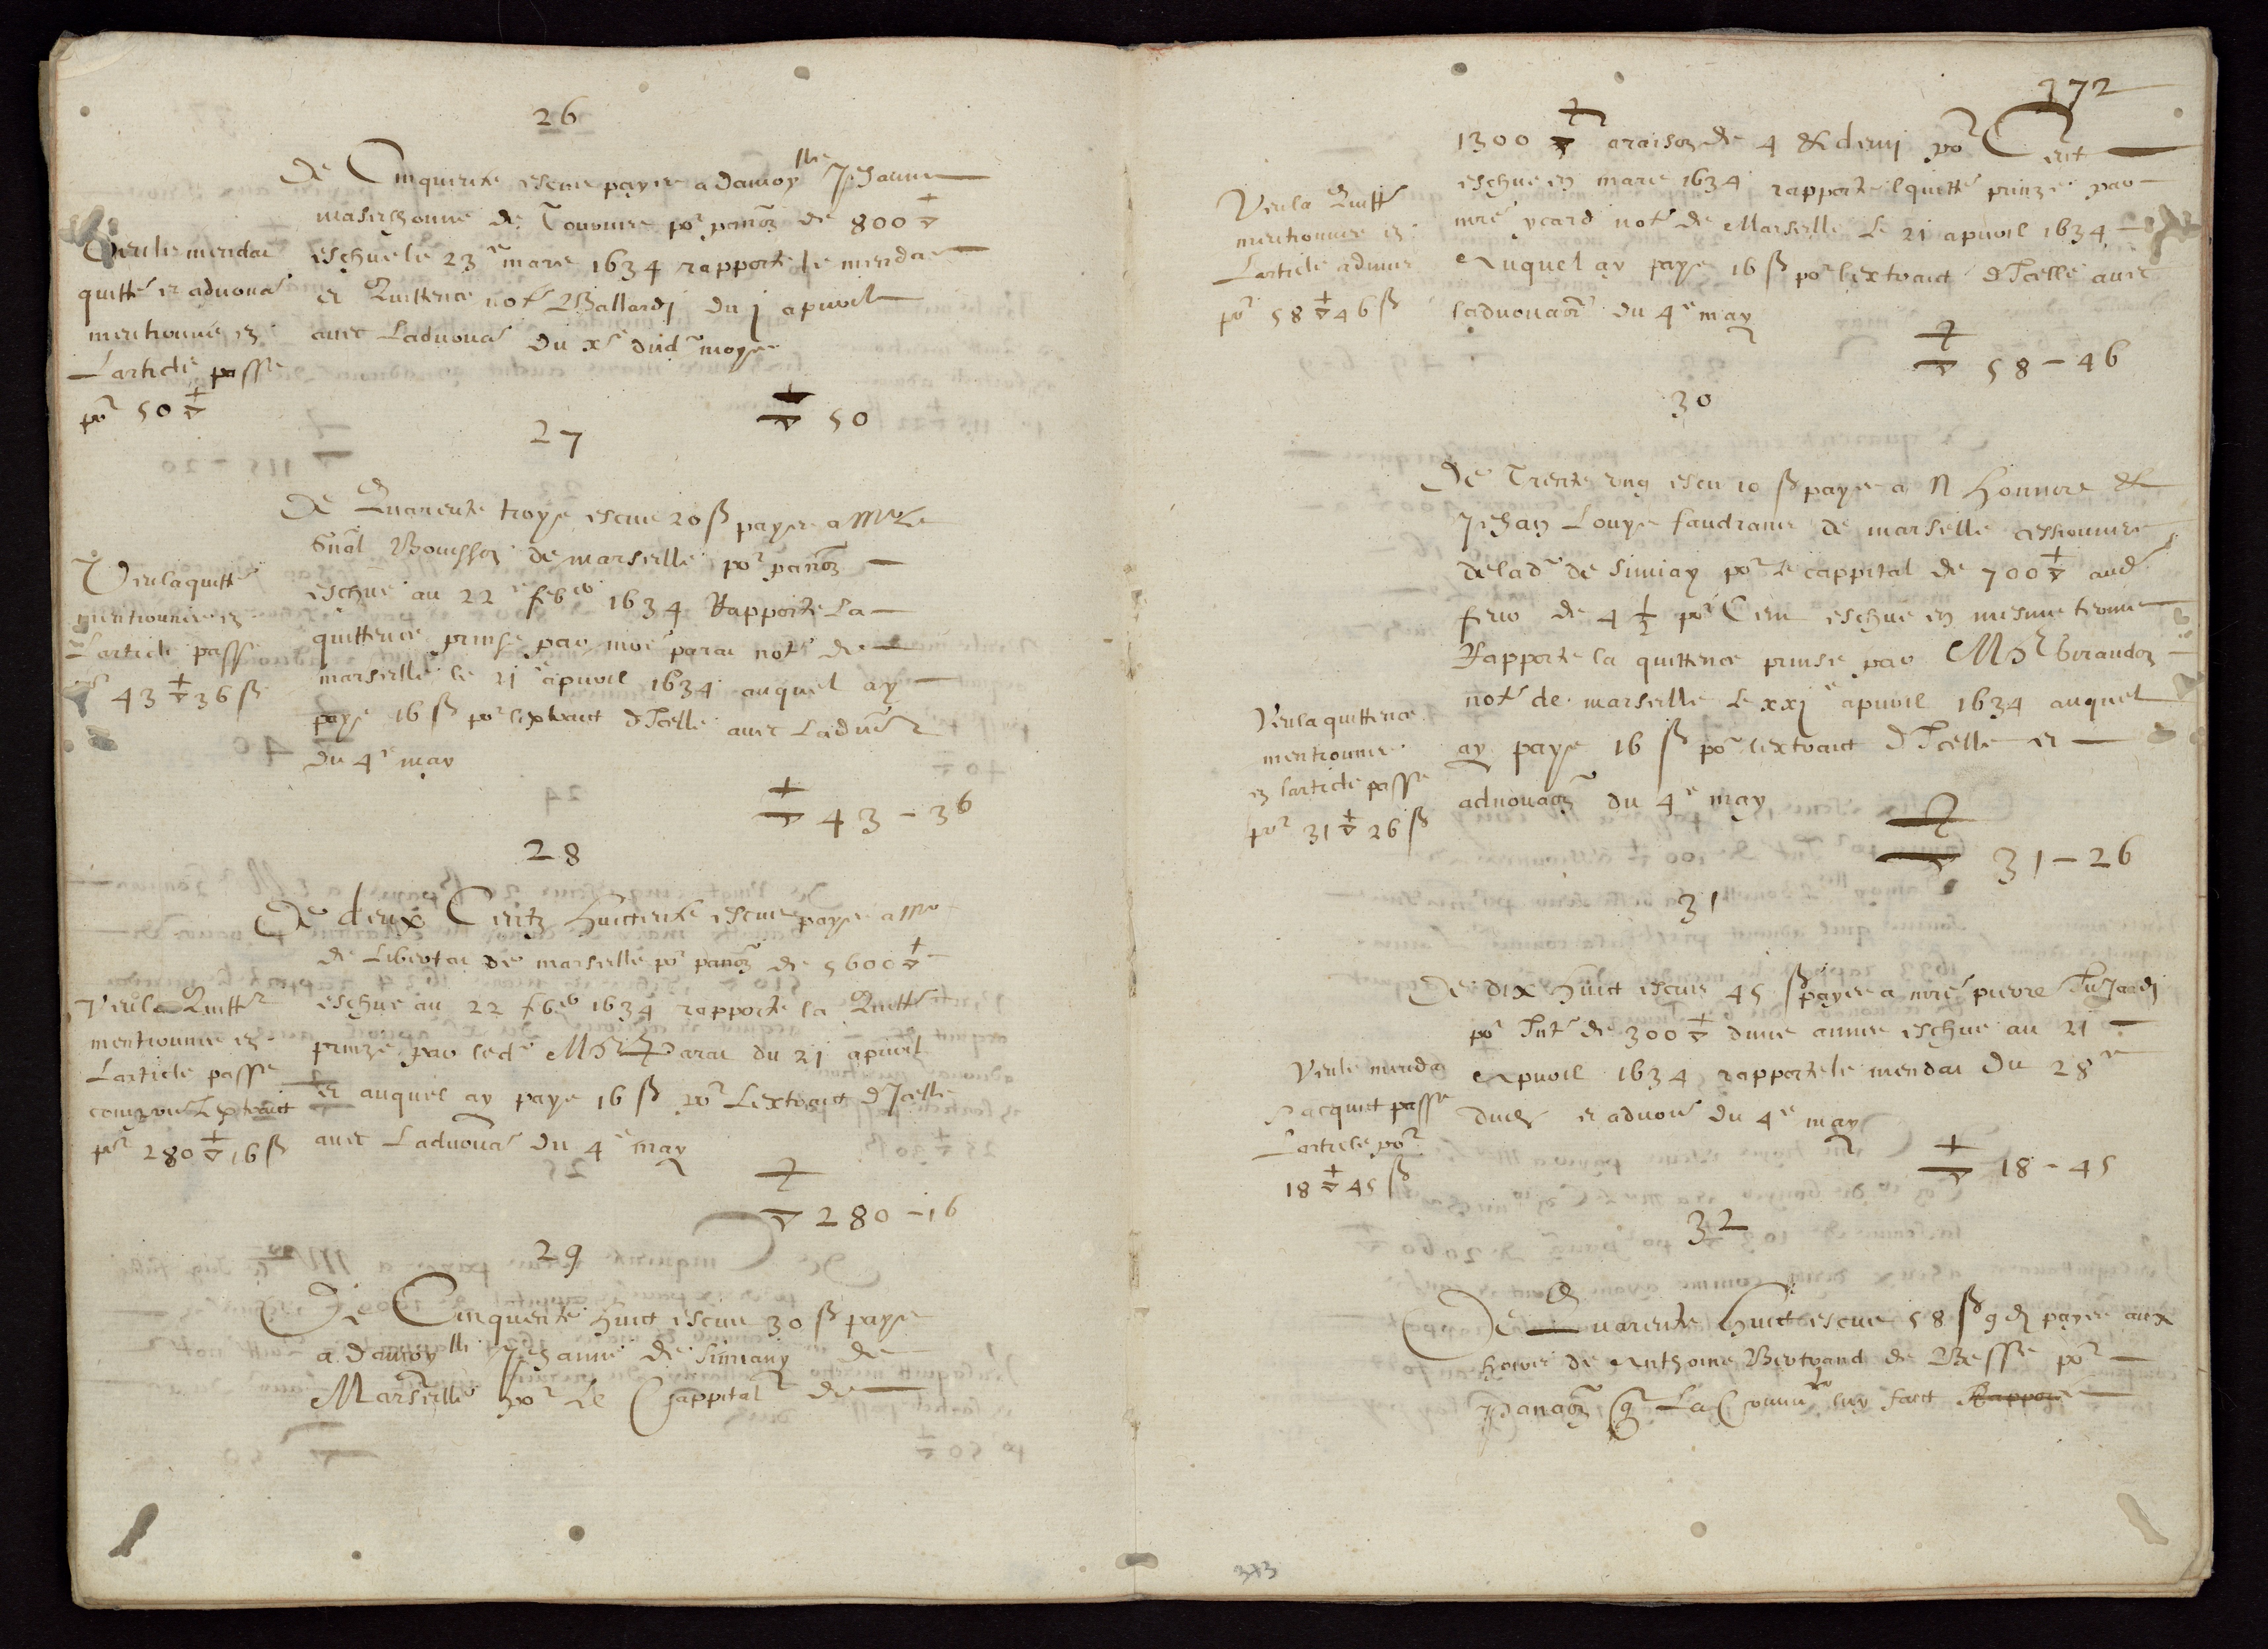 26
De Cinquente escus payes a damoy^lle Jehanne
masershonne de Tourves po^r pan^on de 800 ▽
escheue le 23^e mars 1634 rapporte le mendat
et Quittence not^e Ballardj du j apvril
avec Ladvoua^r du x^e dud^t moys
Veu le mendat
quitt^e et advoua^r
mentionné en
Larticle passe
po^r 50 ▽
▽ 50
27
De Quarente troys escus 20 ß payes a M^r Le
gn̄al Bousson de marseille po^r pan^on
escheue au 22^e feb^er 1634 Rapporte La
quittence prinse par m^re parat not^e de
marseille le 21^e apvril 1634 auquel ay
paye 16 ß po^r lextraict d'Icelle avec Ladv^r
du 4^e may
Veu la quitt^e
mentionnee en
Larticle passe
po^r 43 ▽ 36 ß
▽ 43 - 36
28
De deux Centz huictente escus paye a M^r
de Libertat de marseille po^r pan^on de 5600 ▽
escheue au 22 feb^er 1634 rapporte la Quitt^e
prinze par led^t M^re parat du 21 apvril
et auquel ay paye 16 ß po^r Lextraict d'Icelle
avec Ladvoua^r du 4^e may
Veu la Quitt^e
mentionnee en
Larticle passe
compris Lextraict
po^r 280 ▽ 16 ß
▽ 280 - 16
29
De Cinquente huict escus 30 ß paye
a damoy^lle Jehanne de Simiany de
Marseille po^r Le Cappital de
372
1300 ▽ a raison de 4 & demj po^r Cent
escheue en mars 1634 rapporte lquitt^e prinze par
m^re ycard not^e de Marseille Le 21 apvril 1634
Auquel ay paye 16 ß po^r lextraict d'Icelle avec
ladvoua^on du 4^e may
Veu la Quitt^e
mentionnee en
Larticle admis
po^r 58 ▽ 46 ß
▽ 58 - 46
30
De Trente ung escu 10 ß paye a N honnore &
Jehan Louys faudrans de marseille cessionnere
de lad^e de Simiay po^r Le cappital de 700 ▽ aud^t
feur de 4 ½ po^r Cent escheue en mesme terme
Rapporte la quittence prinse par M^re Giraudon
not^e de marseille Le xxj^e apvril 1634 auquel
ay paye 16 ß po^r lextraict d'Icelle et
advoua^on du 4^e may
Veu la quittence
mentionnee
en larticle passe
po^r 31 ▽ 26 ß
▽ 31 - 26
31
De dix huict escus 45 ß payes a m^re pierre
po^r Int^t de 300 ▽ dune annee escheue au 21
Apvril 1634 rapporte le mendat du 28^e
dud^t et advoua^r du 4^e may
Veu le menda
Lacquit passe
Larticle po^r
18 ▽ 45 ß
▽ 18 - 45
32
De Quarente huict escus 58 ß 9 d payes aux
hoirs de Anthoine Bertrand de Besse po^r
Pana^on q La Commu^te luy faict Rappor
383